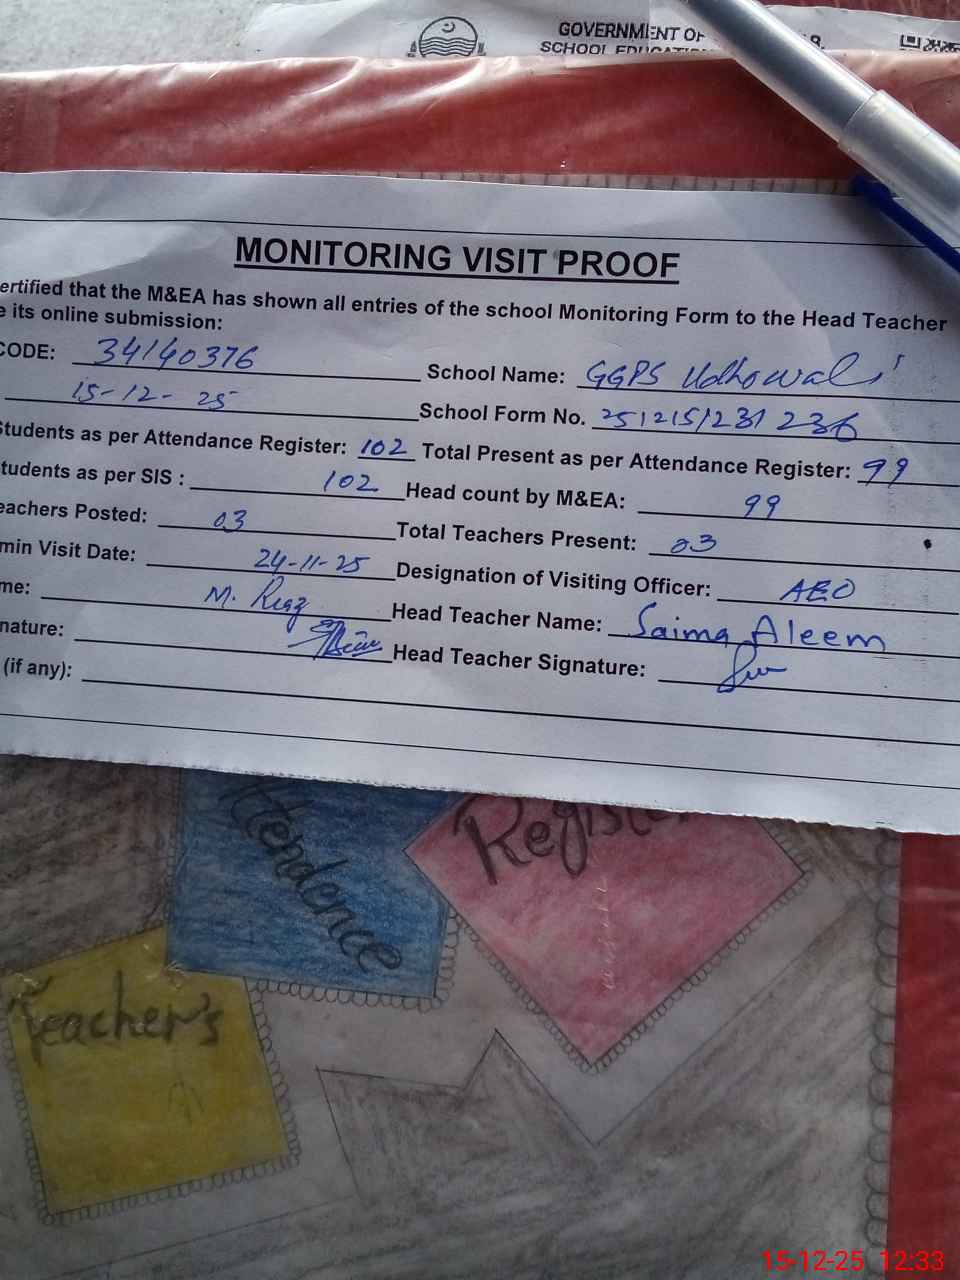 GOVERNMENT OF
SCHOOL EDUCATI
MONITORING VISIT PROOF
ertified that the M&EA has shown all entries of the school Monitoring Form to the Head Teacher
e its online submission:
CODE: 34140376 School Name: GGPS Udhowali
15-12-25 School Form No. 251215/231236
Students as per Attendance Register: 102 Total Present as per Attendance Register: 99
tudents as per SIS : 102 Head count by M&EA: 99
eachers Posted: 03 Total Teachers Present: 03
min Visit Date: 24-11-25 Designation of Visiting Officer: AEO
me: M. Riaz Head Teacher Name: Saima Aleem
nature: Head Teacher Signature:
(if any):
Attendence
Register
Teacher's
15-12-25 12:33